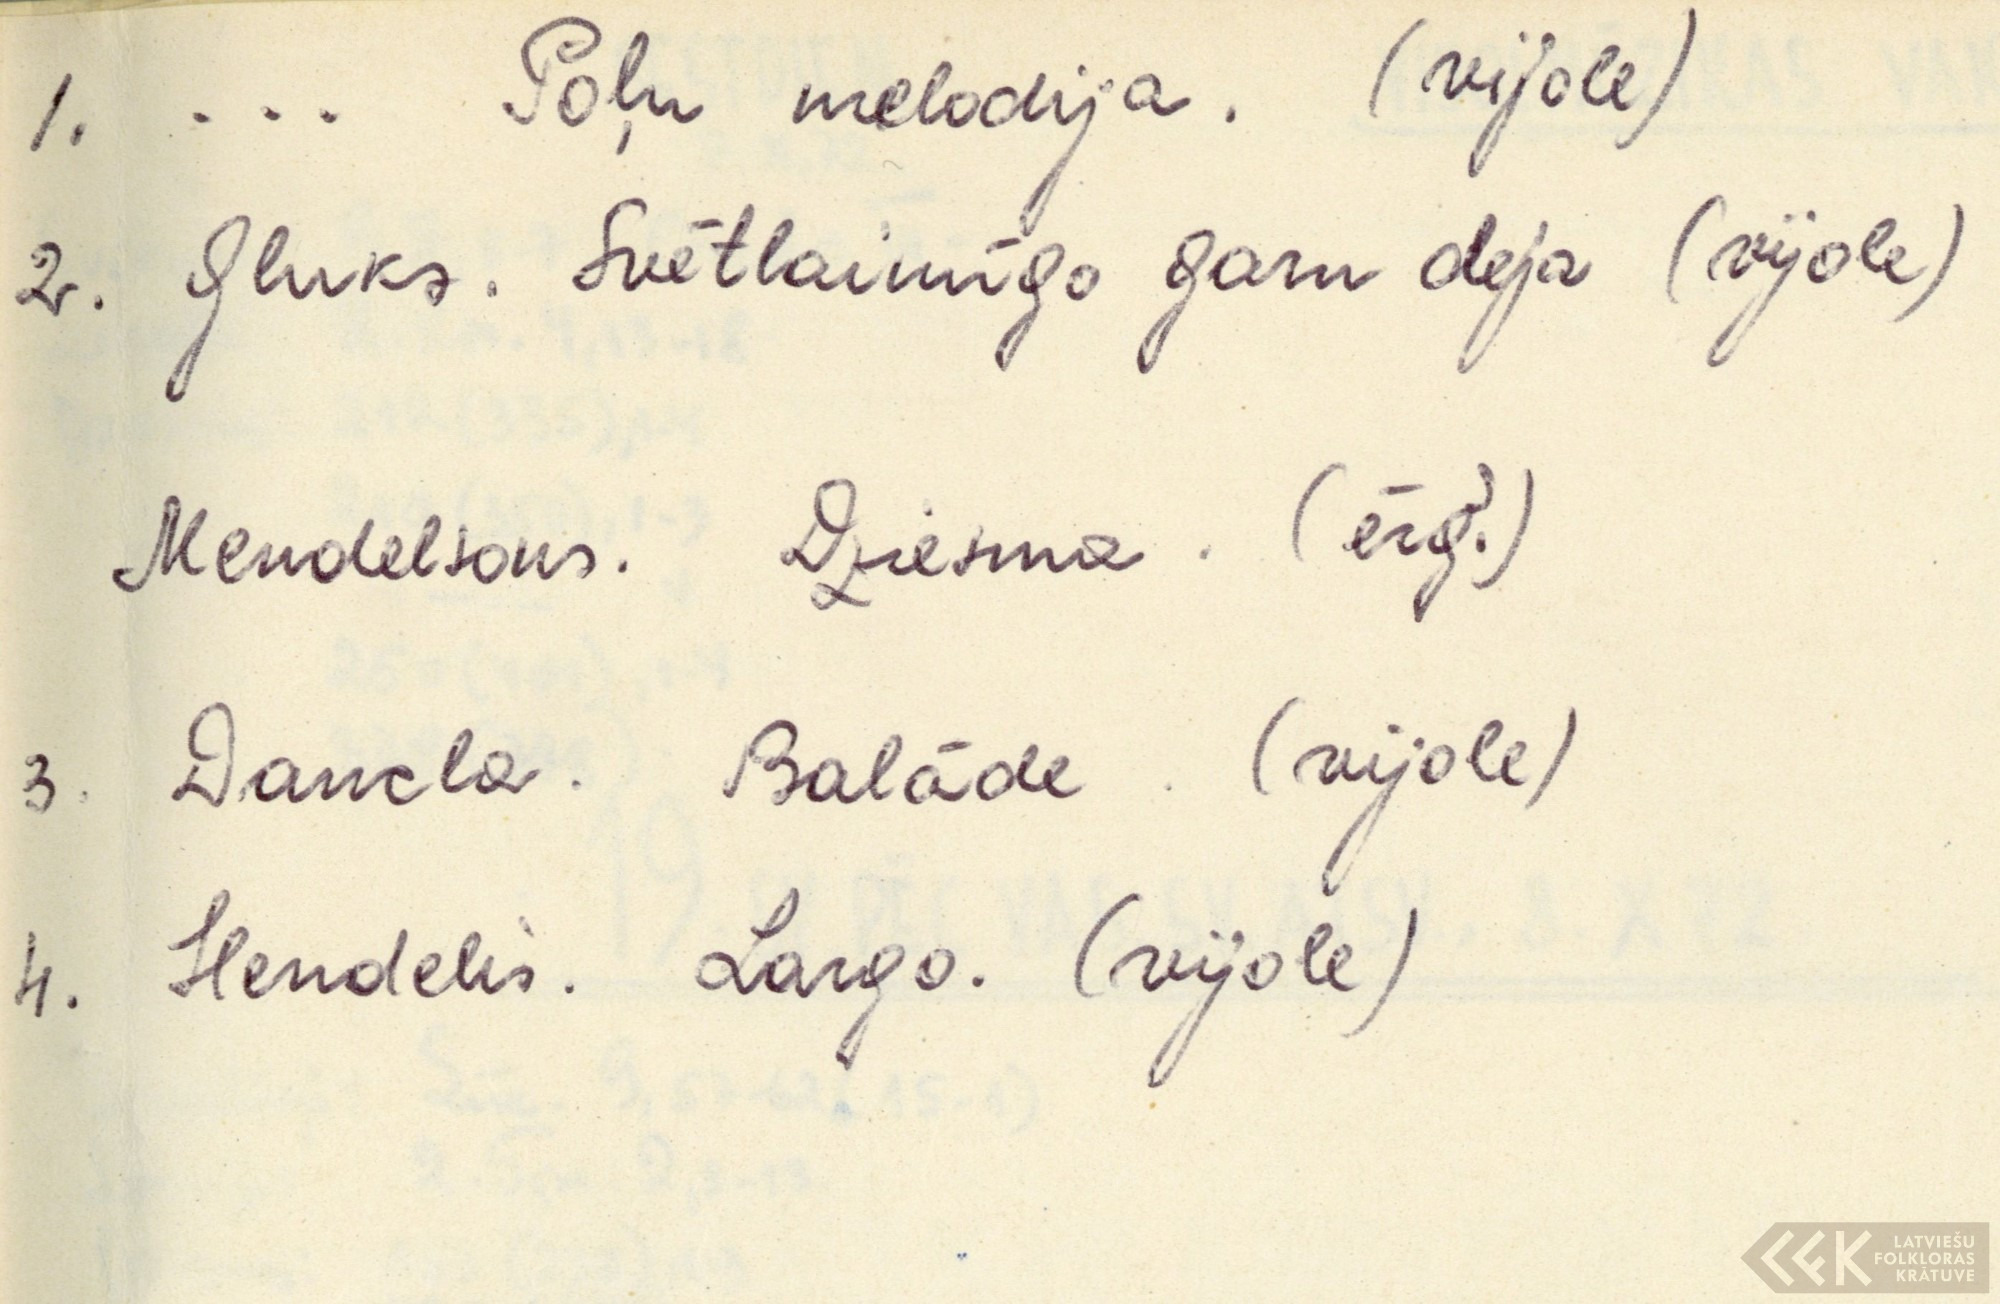 1. ... Poļu melodija. (vijole)
2. Gluks. Svētlaimīgo garu deja (vijole)
Mendelsons. Dziesma. (ērģ.)
3. Dancla. Balāde. (vijole)
4. Hendelis. Largo. (vijole)
LATVIEŠU
FOLKLORAS
KRĀTUVE